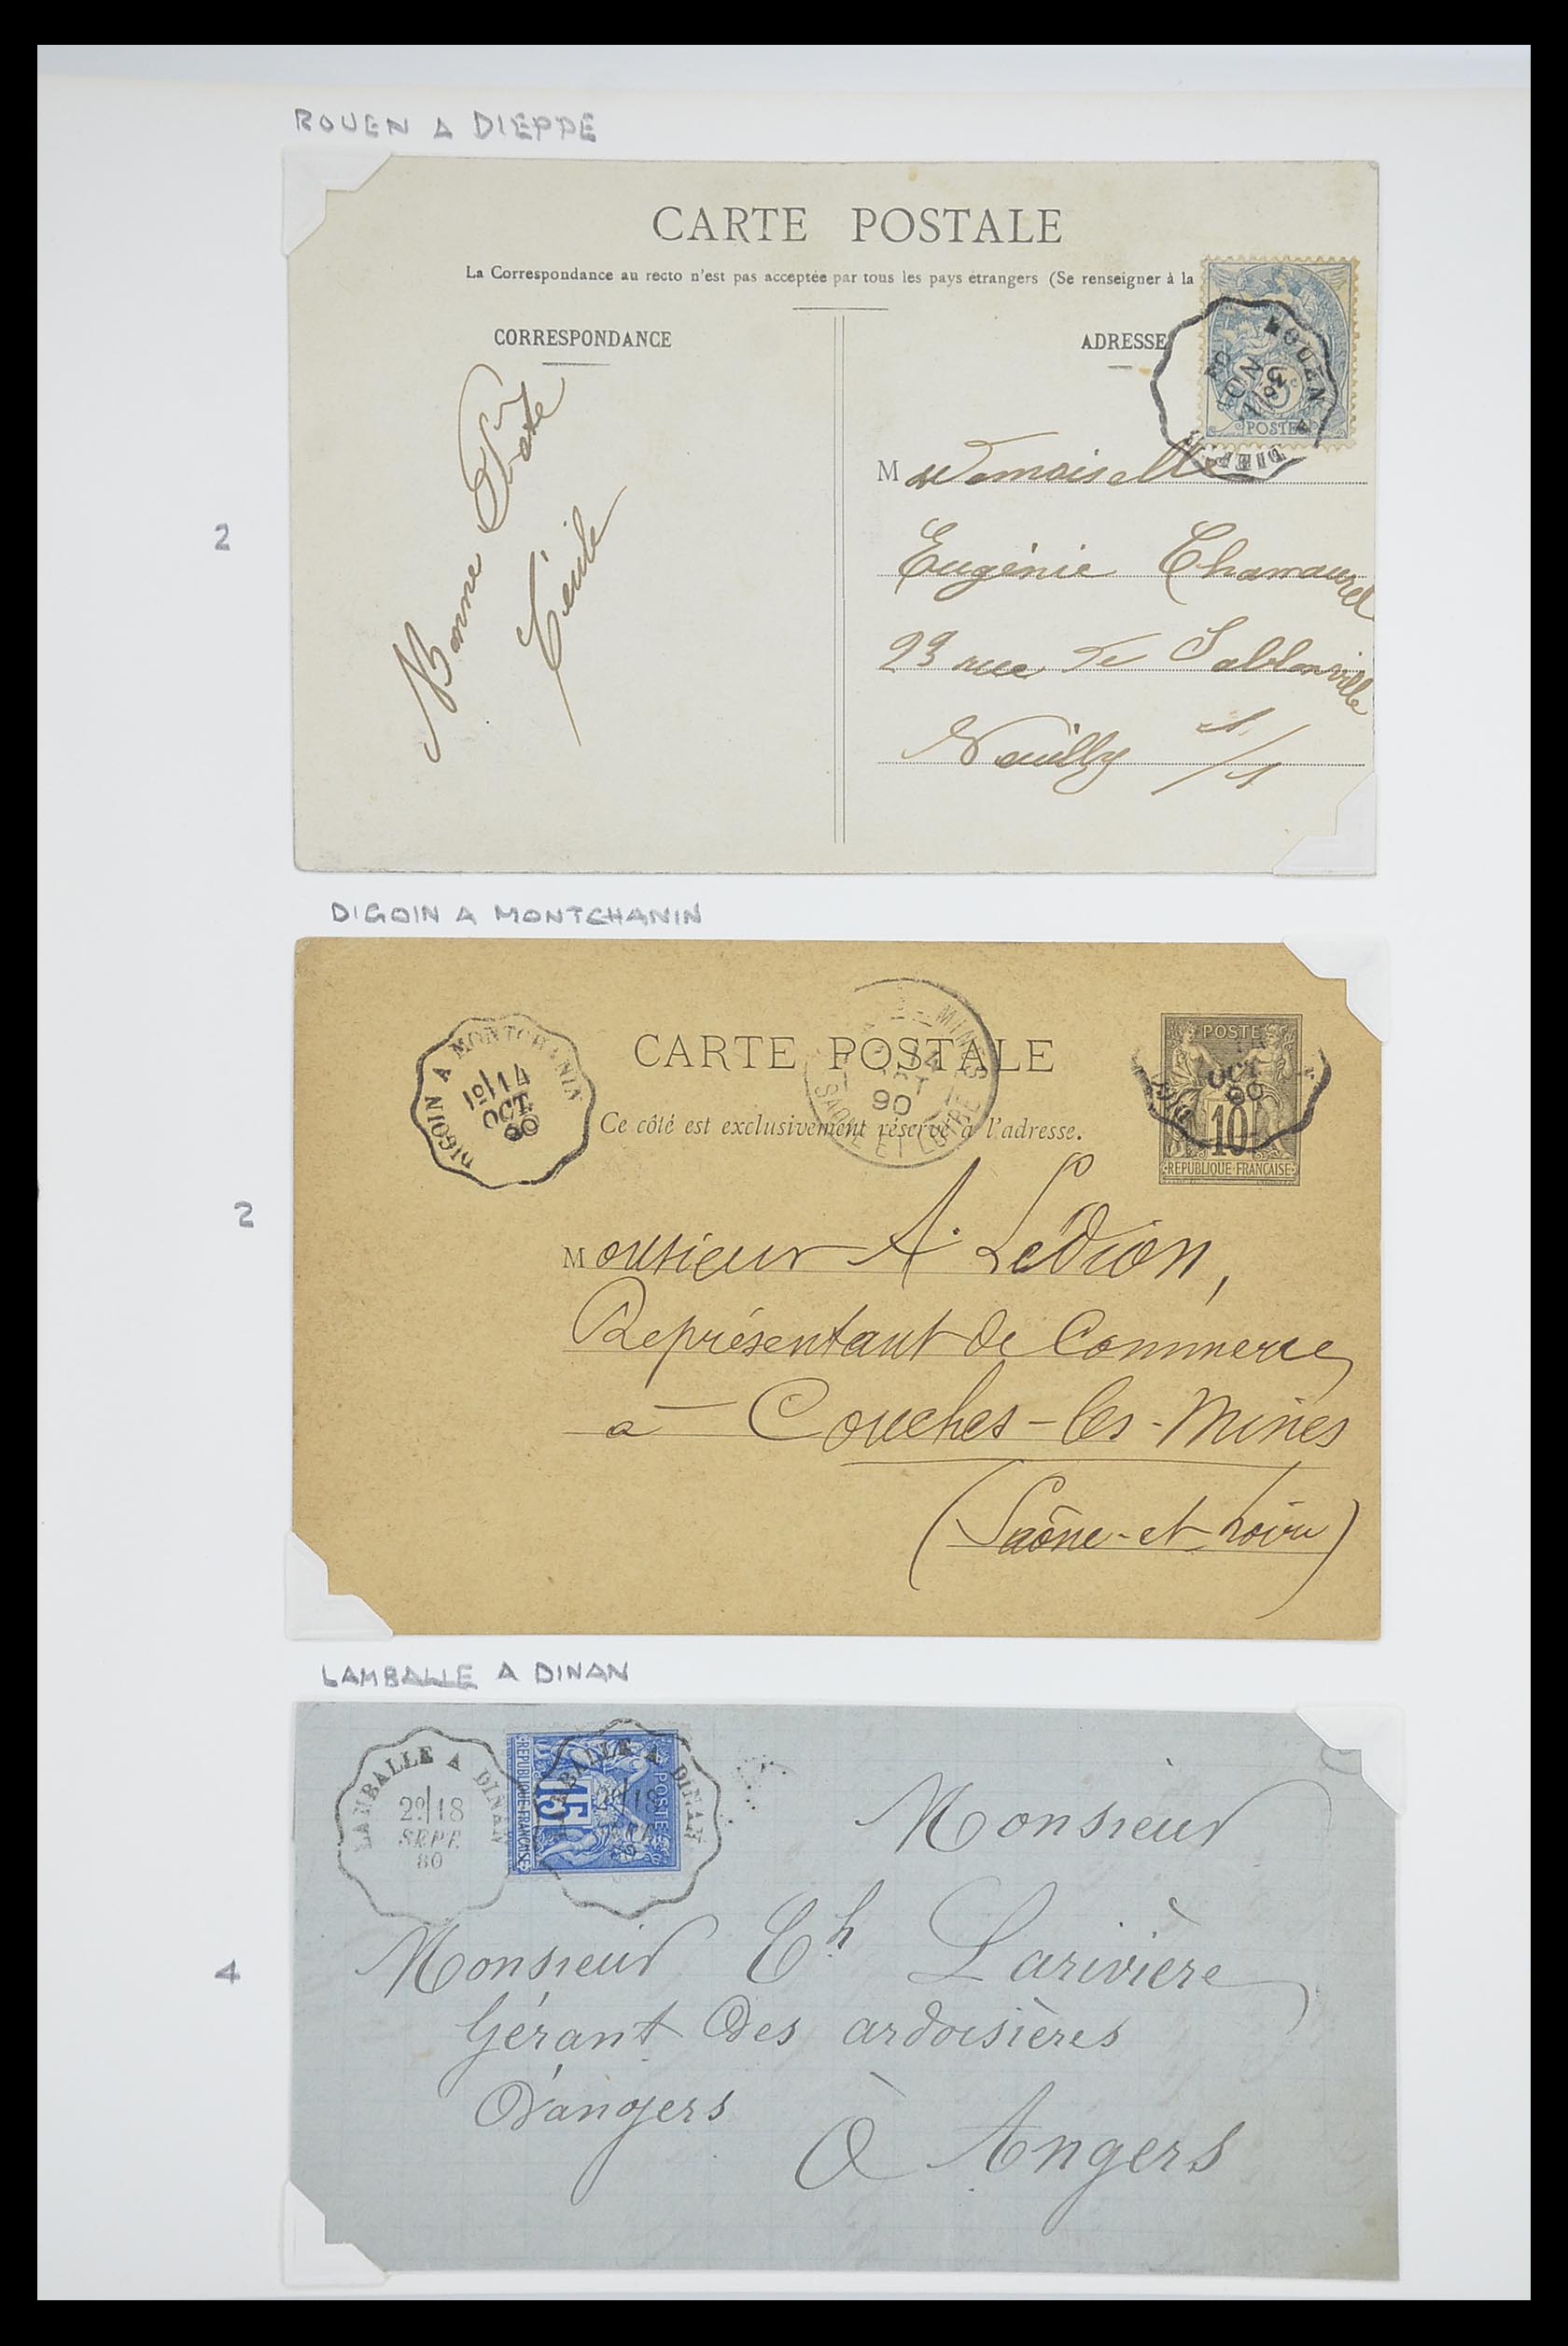 ROUEN A DIEPPE
CARTE POSTALE
La Correspondance au recto n'est pas acceptée par tous les pays étrangers (Se renseigner à la
CORRESPONDANCE
ADRESSE
POSTES
ROUEN A DIEPP
Bonne
Cécile
Mademoiselle
Eugénie
23 rue de Sablonville
Neuilly s/s
2
DIGOIN A MONTCHANIN
DIGOIN A MONTCHANIN
1º/14
OCT
90
CARTE POSTALE
Ce côté est exclusivement réservé à l'adresse.
MINES
14
OCT
90
SAONE ET LOIRE
POSTE
OCT
90
10
REPUBLIQUE FRANCAISE
2
Monsieur A. Lédion,
Représentant de Commerce
à Couches-les-Mines
(Saône-et-Loire)
LAMBALLE A DINAN
LAMBALLE A DINAN
2º/18
SEPT.
80
LAMBALLE A DINAN
2º/18
POSTES
15
REPUBLIQUE FRANCAISE
Monsieur
Monsieur Ch Larivière
Gérant des ardoisières
D'angers
à Angers
4